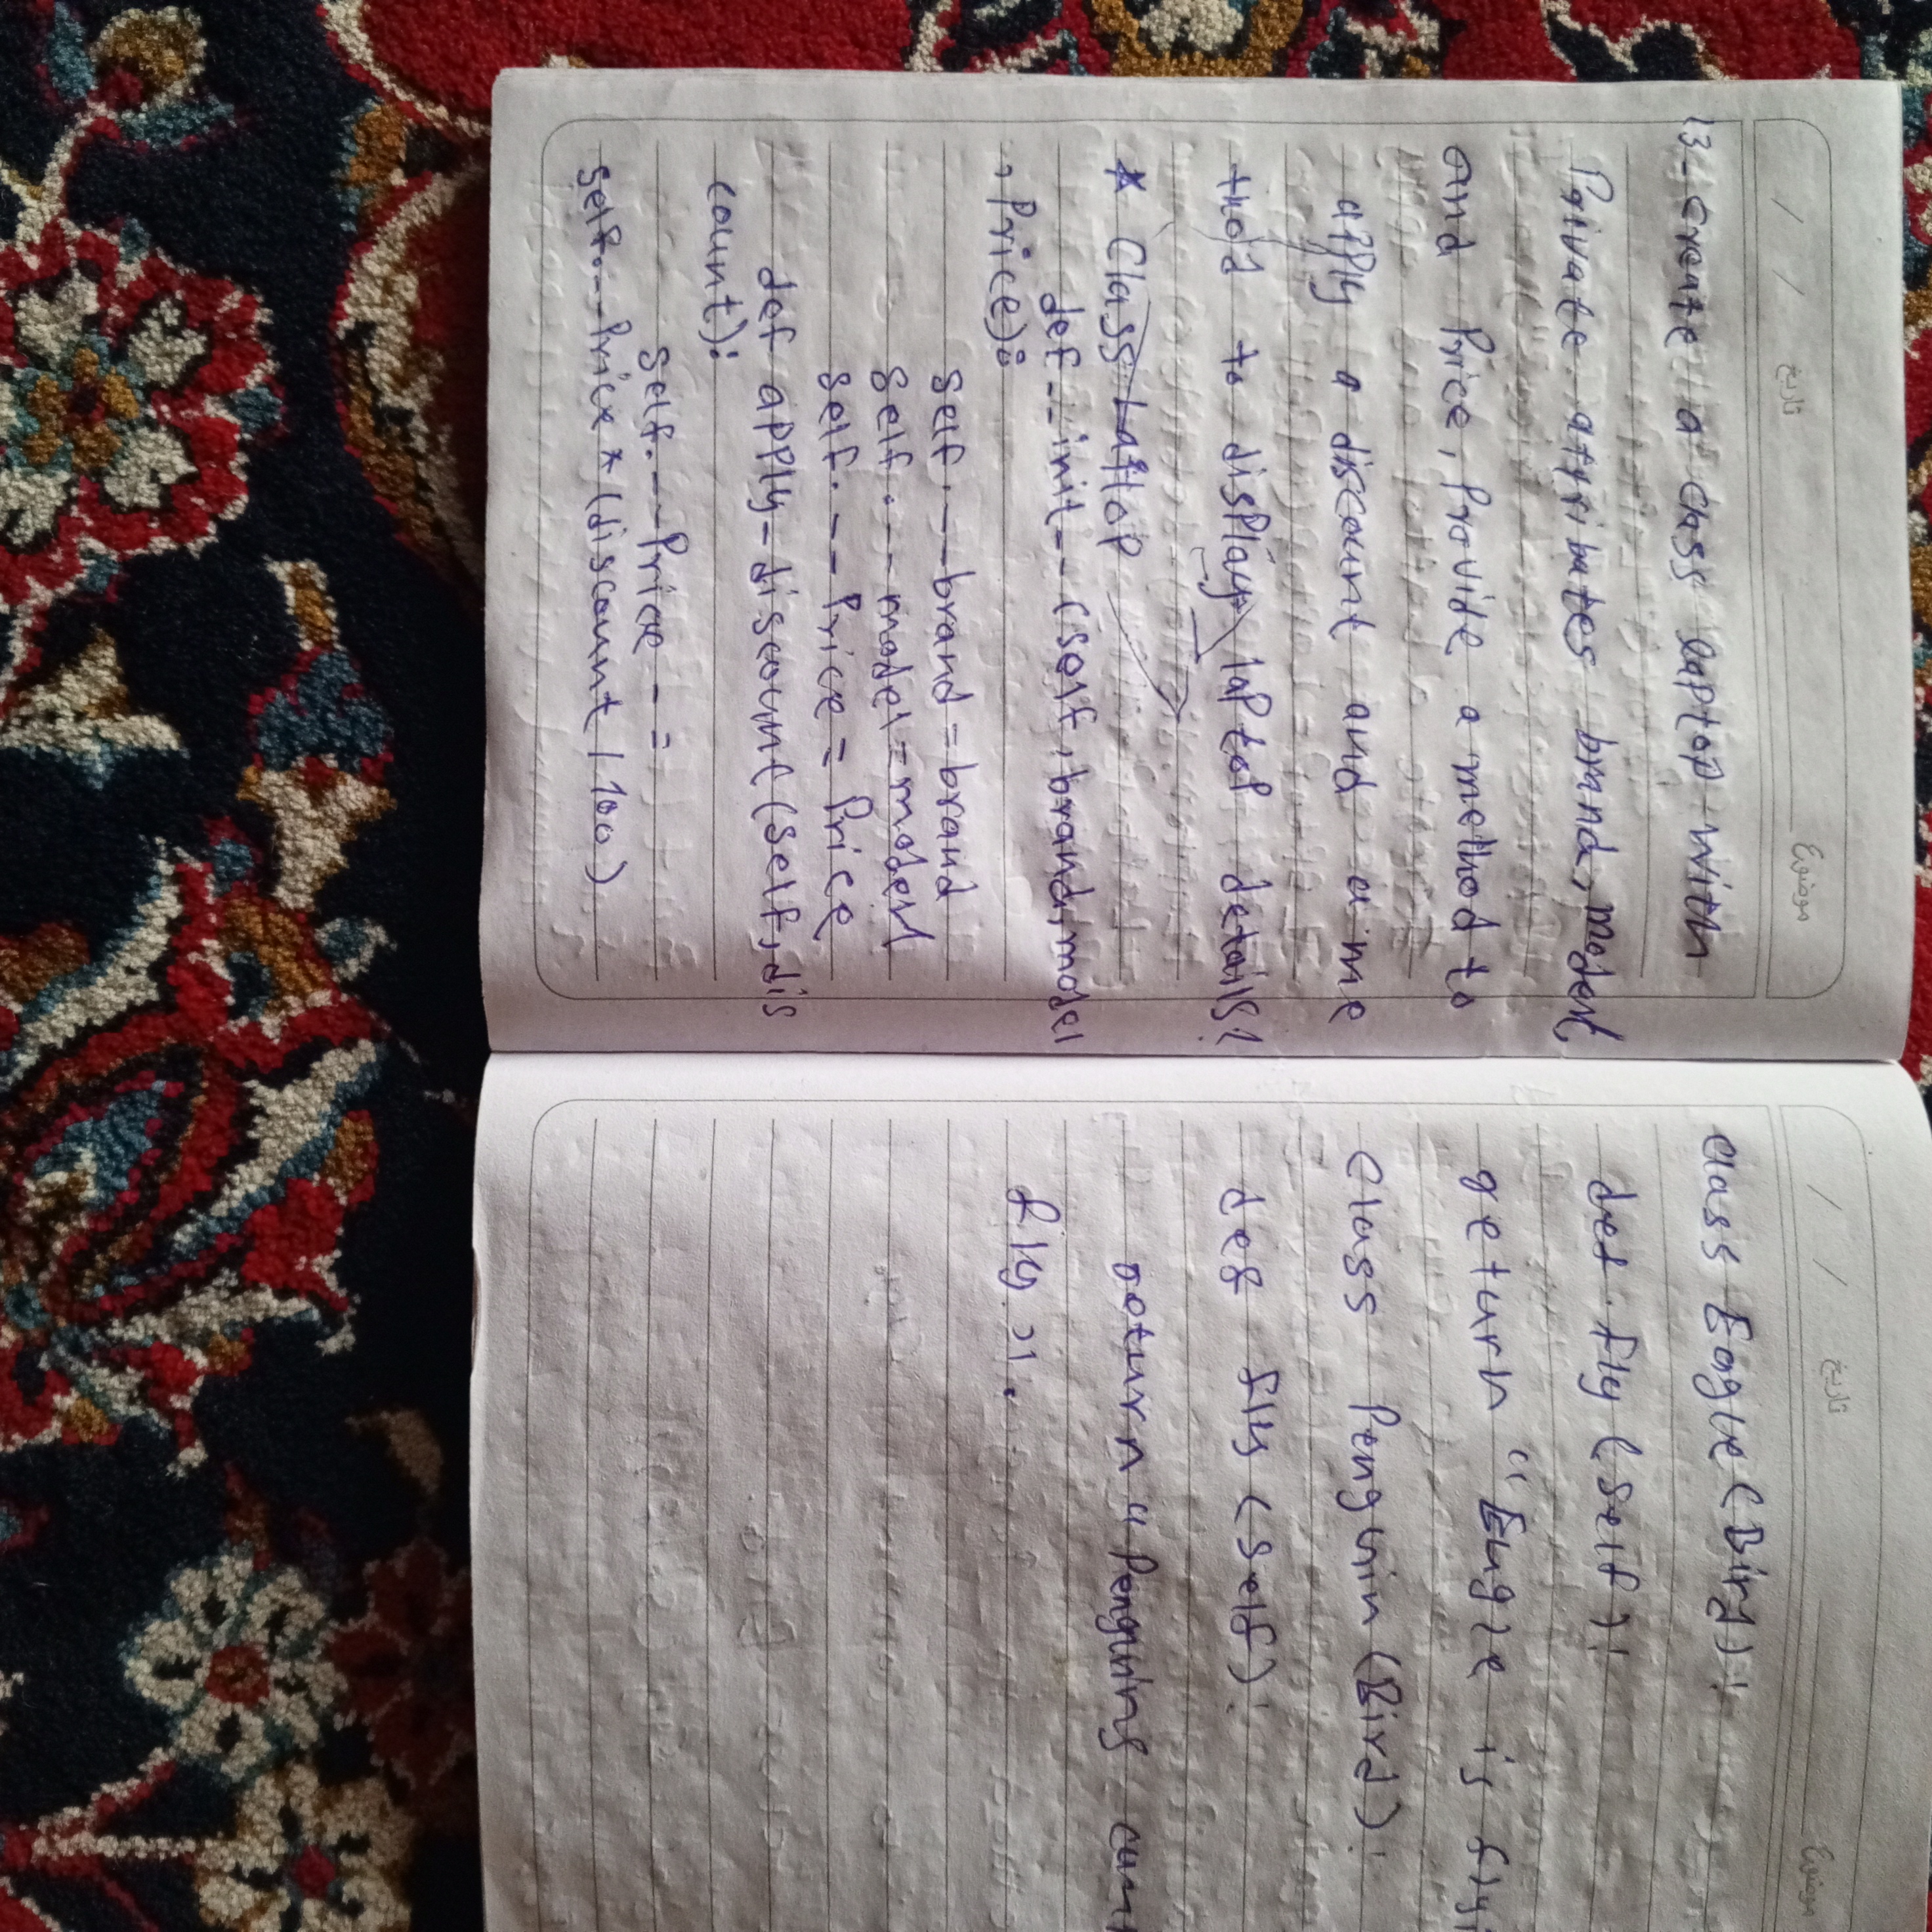 تاریخ موضوع
13- Create a class laptop with
Private attributes brand, model
and Price, Provide a method to
apply a discount and a me
thod to display laptop details!
* Class Laptop
def -- init -- (self, brand, model
, Price):
self. -- brand = brand
self. -- model = model
self. -- Price = Price
def apply - discount (self, dis
count):
self. -- Price - =
self. -- Price * (discount / 100)
تاریخ موضوع
class Eagle (Bird):
def fly (self):
return "Eagle is flyi
Class Penguin (Bird):
def fly (self):
return " Penguins can
fly ".